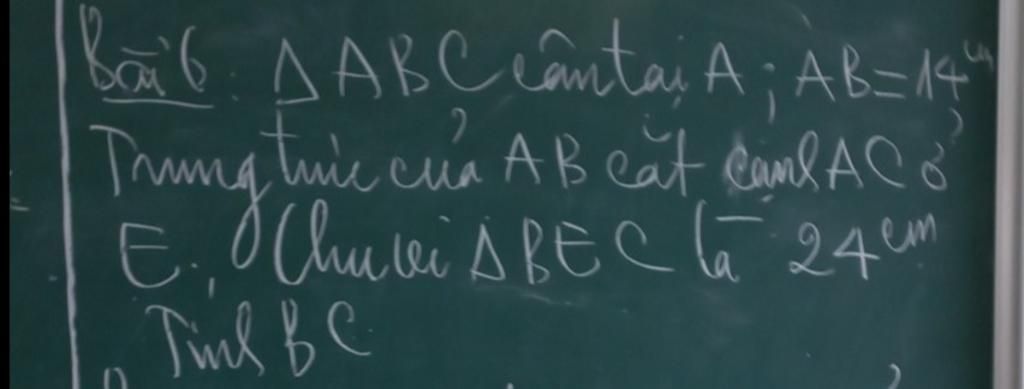 Bài 6. ΔABC cân tại A; AB=14cm
Trung trực của AB cắt cạnh AC ở
E. Chu vi ΔBEC là 24cm
Tính BC